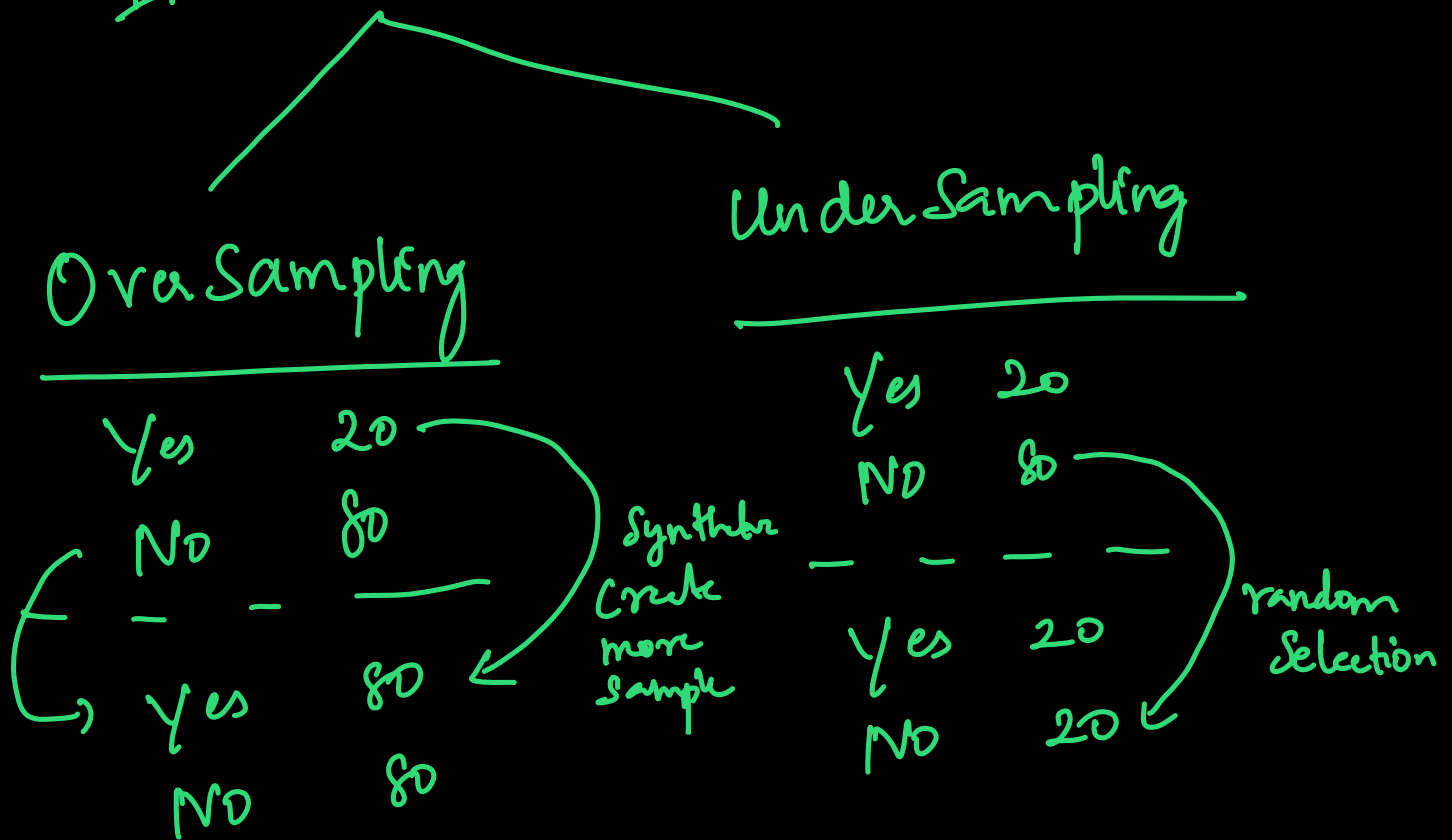 OverSampling
Yes 20
NO 80
Yes 80
NO 80
Create
more
sample
UnderSampling
Yes 20
NO 80
Yes 20
NO 20
random
Selection